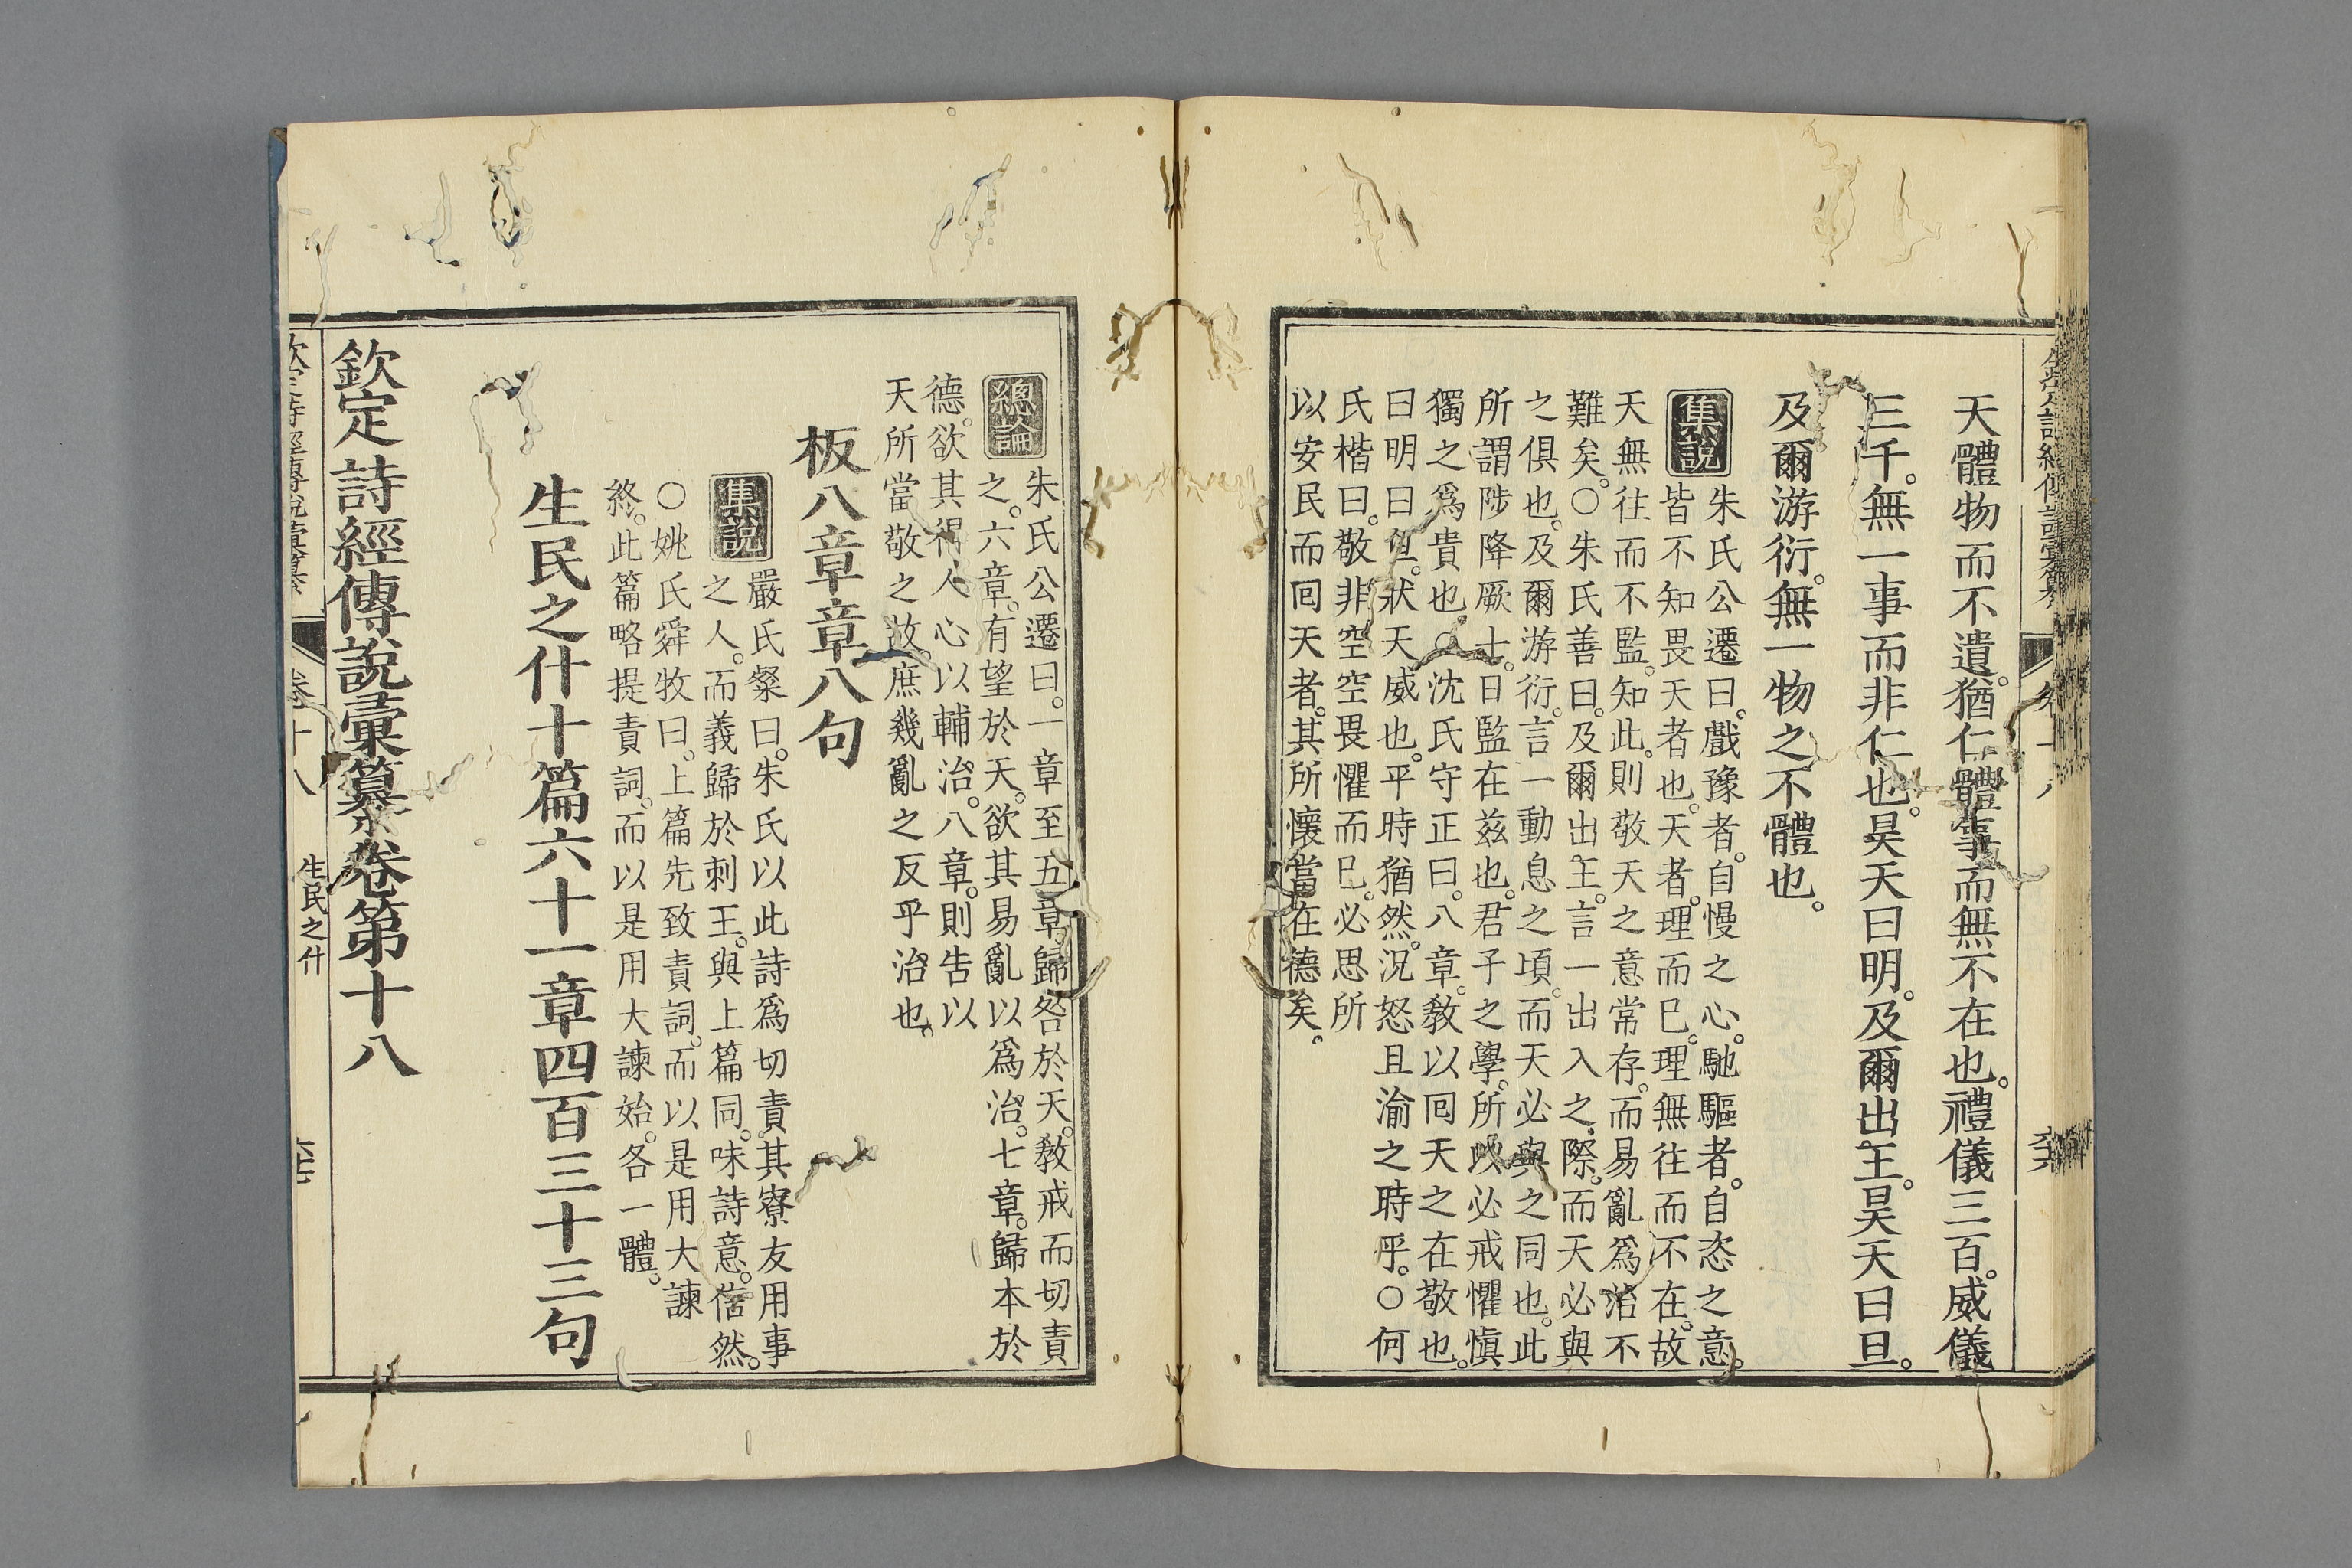 天體物而不遺。猶仁體事而無不在也。禮儀三百。威儀
三千。無一事而非仁也。昊天曰明。及爾出王。昊天曰旦。
及爾游衍。無一物之不體也。
集說
朱氏公遷曰。戲豫者。自慢之心。馳驅者。自恣之意。
皆不知畏天者也。天者。理而已。理無往而不在。故
天無往而不監。知此。則敬天之意常存。而易亂爲治不
難矣。○朱氏善曰。及爾出王。言一出入之際。而天必與
之俱也。及爾游衍。言一動息之頃。而天必與之同也。此
所謂陟降厥士。日監在茲也。君子之學。所以必戒懼愼
獨之爲貴也。○沈氏守正曰。八章。敎以囘天之在敬也。
曰明曰旦。狀天威也。平時猶然。況怒且渝之時乎。○何
氏楷曰。敬非空空畏懼而已。必思所
以安民而囘天者。其所懷當在德矣。
總論
朱氏公遷曰。一章至五章歸咎於天。敎戒而切責
之。六章。有望於天。欲其易亂以爲治。七章。歸本於
德。欲其得人心以輔治。八章。則告以
天所當敬之故。庶幾亂之反乎治也。
板八章章八句
集說
嚴氏粲曰。朱氏以此詩爲切責其寮友用事
之人。而義歸於刺王。與上篇同。味詩意。信然。
○姚氏舜牧曰。上篇先致責詞。而以是用大諫
終。此篇略提責詞。而以是用大諫始。各一體。
生民之什十篇六十一章四百三十三句
欽定詩經傳說彙纂卷第十八
卷十八
生民之什